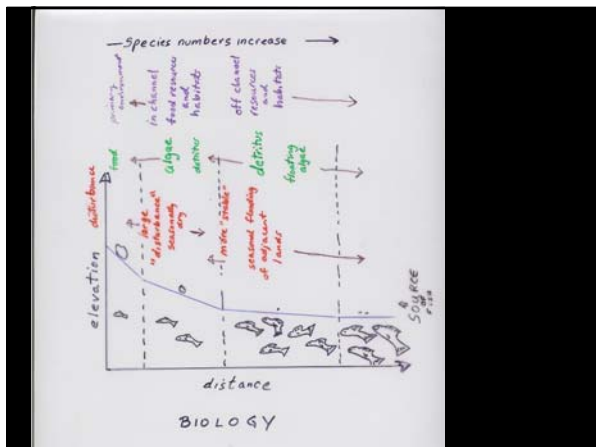 Species numbers increase
primary environment
in channel
food resources
and
habitats
off channel
resources
and
habitat
food
algae
detritus
detritus
floating
algae
disturbance
large
"disturbance"
seasonally
dry
more "stable"
seasonal flooding
of adjacent
lands
elevation
SOURCE
OF
FISH
distance
BIOLOGY